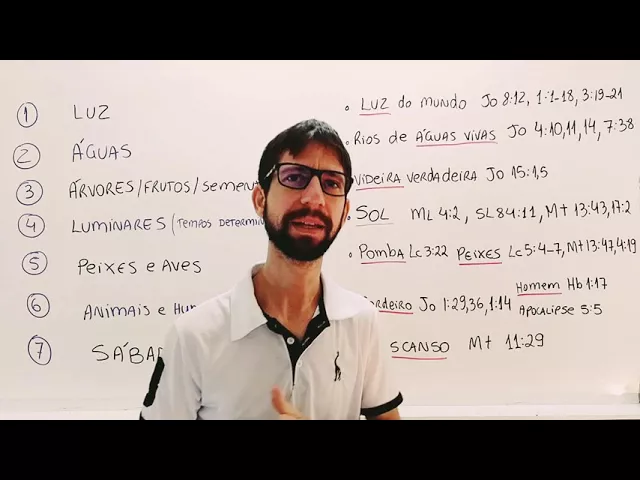 1 LUZ
2 ÁGUAS
3 ÁRVORES/FRUTOS/SEMEN
4 LUMINARES (TEMPOS DETERMIN
5 PEIXES e AVES
6 ANIMAIS e HU
7 SÁBAD
• LUZ do mundo Jo 8:12, 1:1-18, 3:19-21
• Rios de ÁGUAS VIVAS Jo 4:10,11,14, 7:38
VIDEIRA VERDADEIRA Jo 15:1,5
• SOL ML 4:2, SL 84:11, Mt 13:43, 17:2
• POMBA Lc 3:22 PEIXES Lc 5:4-7, Mt 13:47, 4:19
Homem Hb 1:17
ordeiro Jo 1:29,36, 1:14 APOCALIPSE 5:5
SCANSO Mt 11:29